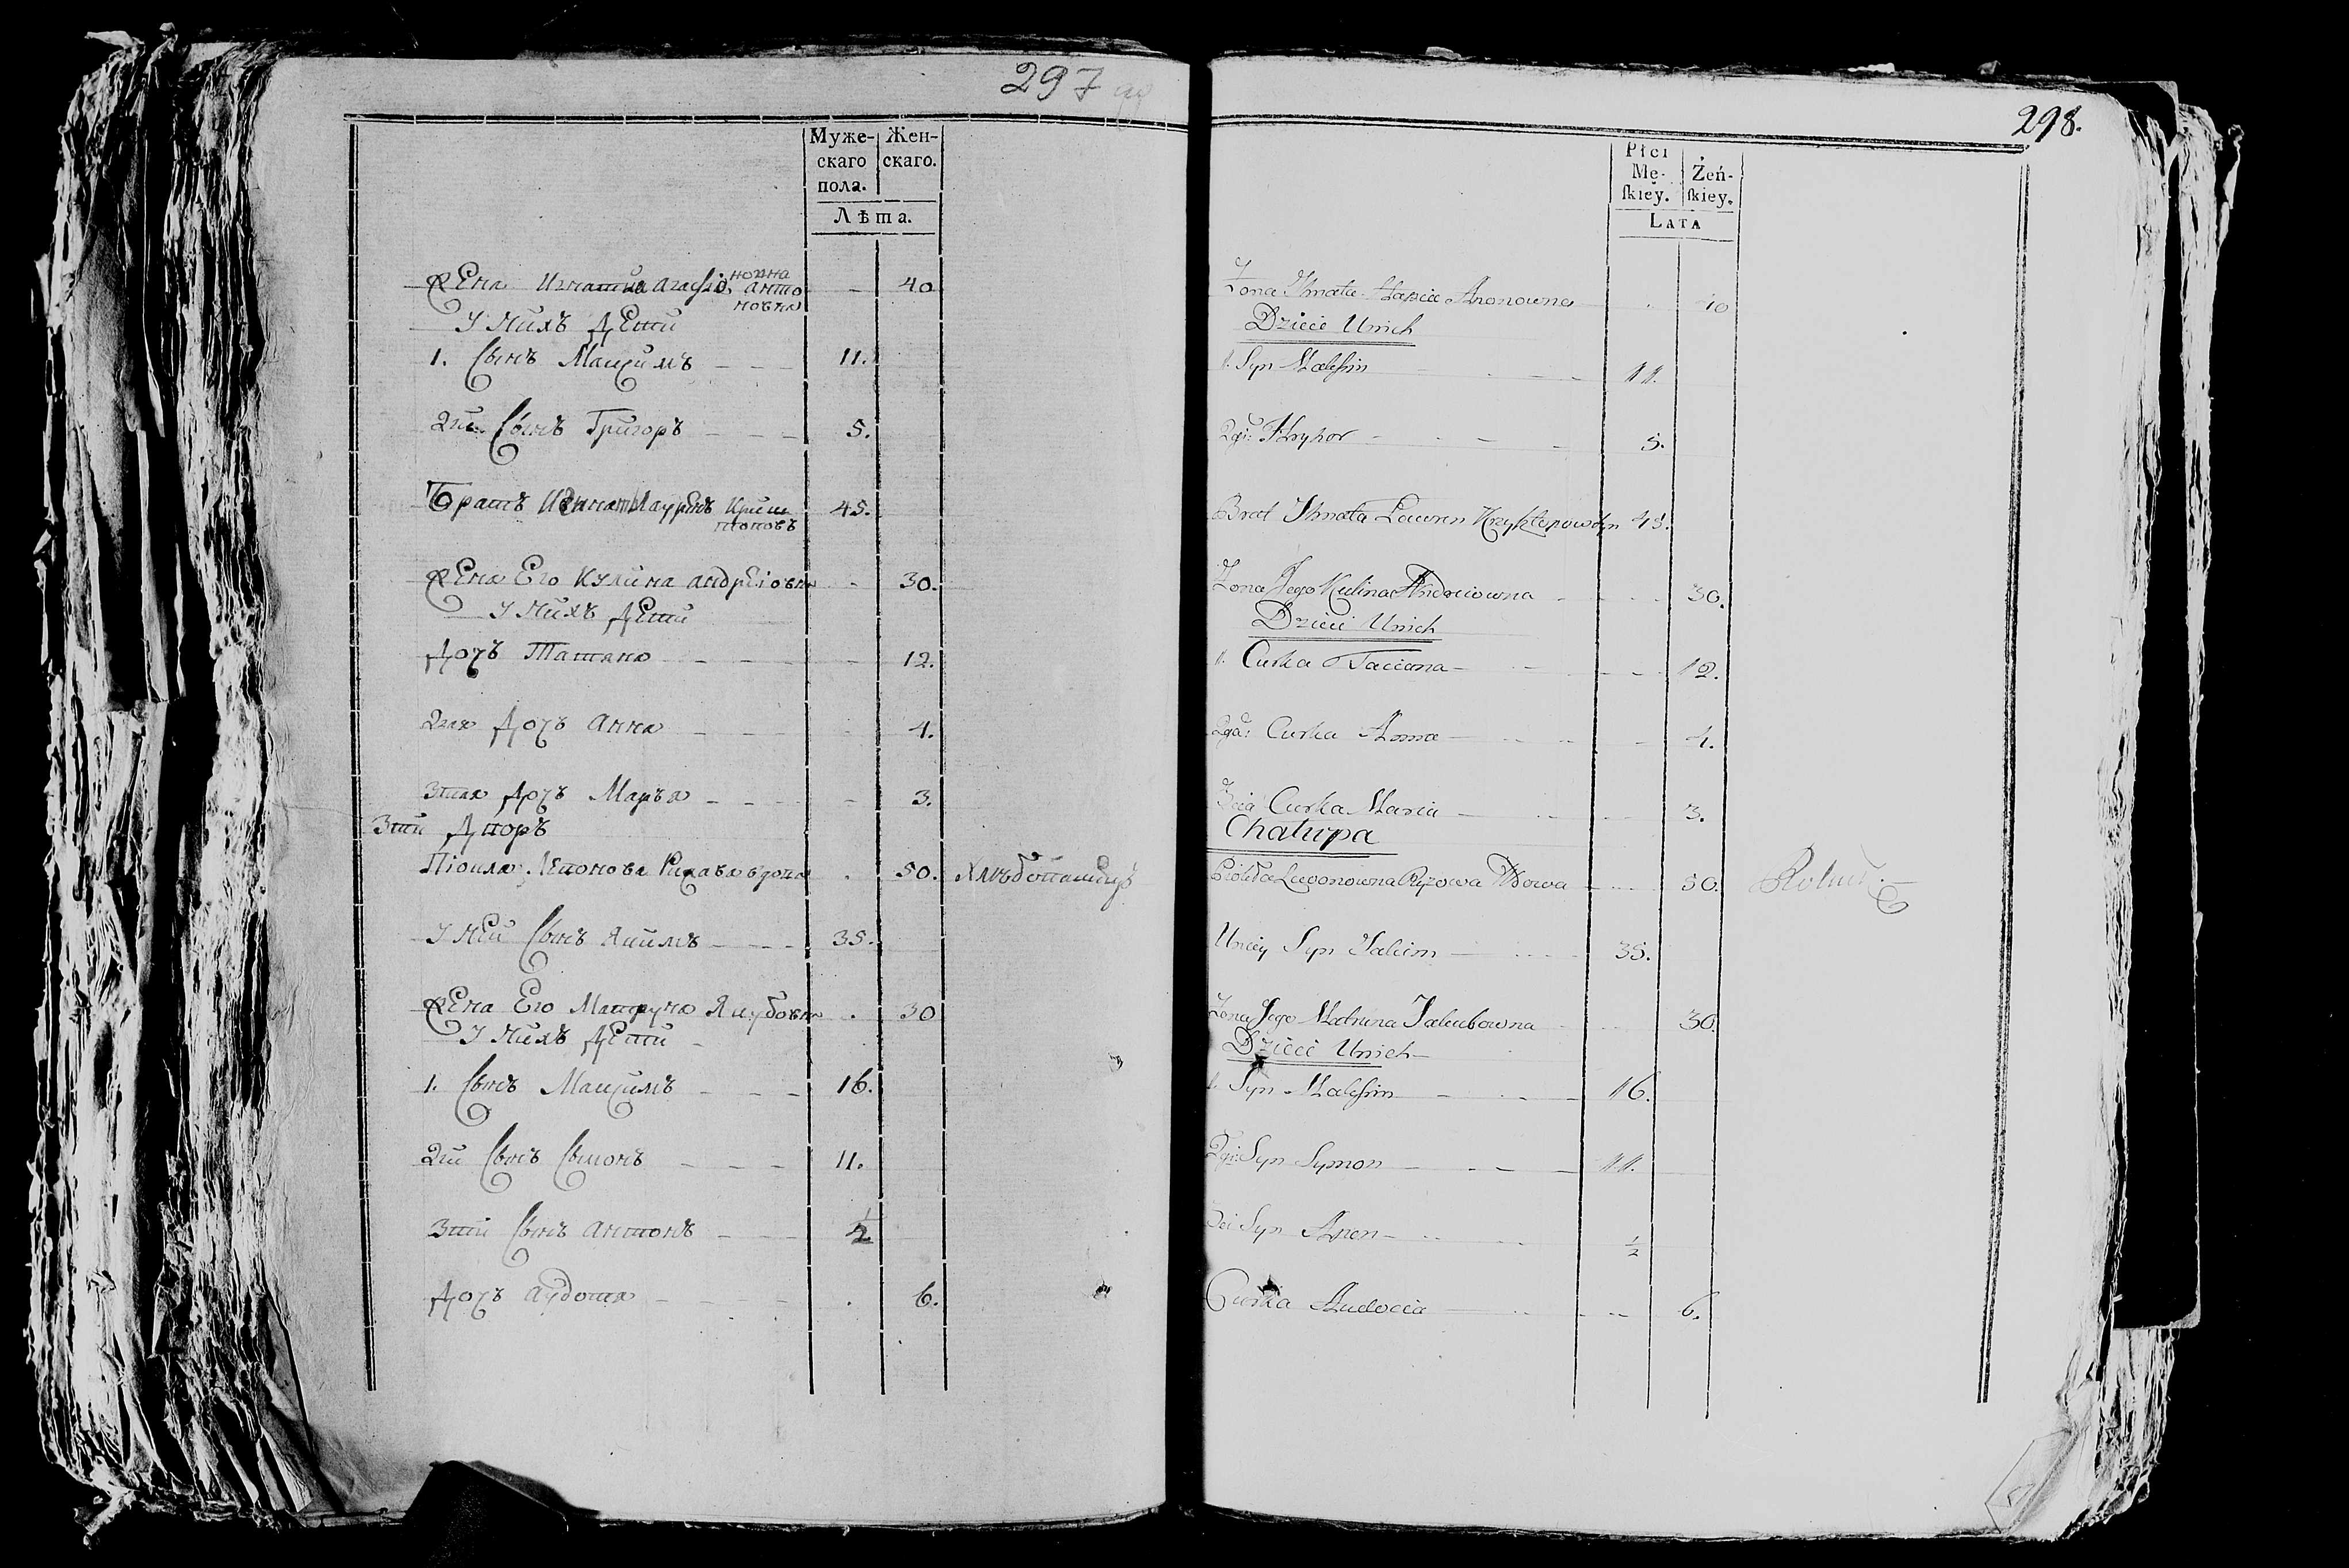 297
Муже-
скаго
пола.
Жен-
скаго.
Лѣта.
Жена Игната 40
У нихъ Дети
1. Сынъ Максимъ 11.
2гй. Сынъ Григоръ 5.
Братъ Игната Лаурѣнъ Криш
топовъ 45.
Жена Его Кулина андрЕiовна 30.
У нихъ Дети
Дочъ Татяна 12.
2гая Дочъ Анна 4.
3тая Дочъ Маръя 3.
3тй Дворъ
Левонова вдова 50. Хлѣбопашецъ
У ней Сынъ Якимъ 35.
Жена Его Матруна Якубовна 30
У нихъ Дети
1. Сынъ Максимъ 16.
2гй Сынъ Сымонъ 11.
3тй Сынъ антонъ 1/2
Дочъ аудотя 6.
298.
Płci
Mę-
ſkiey.
Żeń-
ſkiey.
LATA
Zona Ihnata 40
Dzieci Unich
1. Syn Maksim 11.
2gi: Hryhor 5.
Brat Ihnata Lauren 45.
Zona Jego Kulina Andreiowna 30.
Dzieci Unich
1. Curka Taciana 12.
2ga: Curka Anna 4.
3cia Curka Maria 3.
Chałupa
Lewonowna Wdowa 50. Rolnik
Uniey Syn Jakim 35.
Zona Jego Matruna Jakubowna 30.
Dzieci Unich
1. Syn Maksim 16.
2gi: Syn Symon 11.
3ci Syn 1/2
Curka Audocia 6.